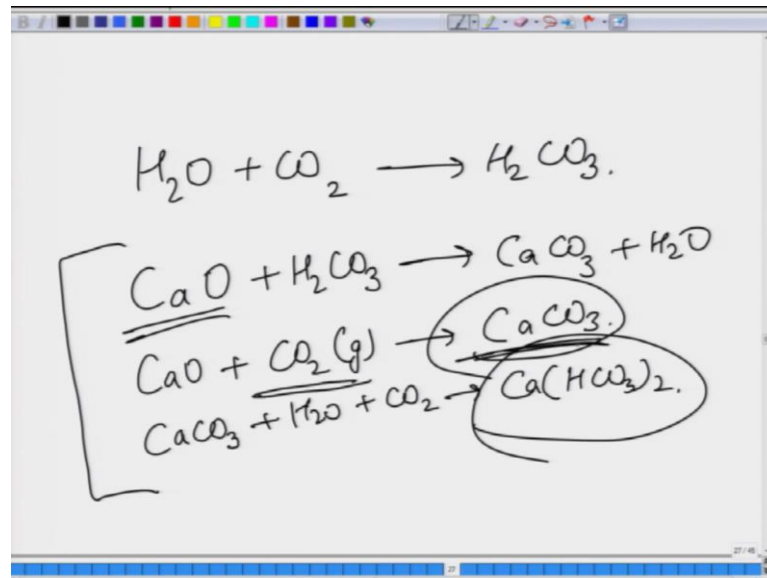 B I
H₂O + CO₂ → H₂CO₃.
CaO + H₂CO₃ → CaCO₃ + H₂O
CaO + CO₂(g) → CaCO₃.
CaCO₃ + H₂O + CO₂ → Ca(HCO₃)₂.
27 / 45
27